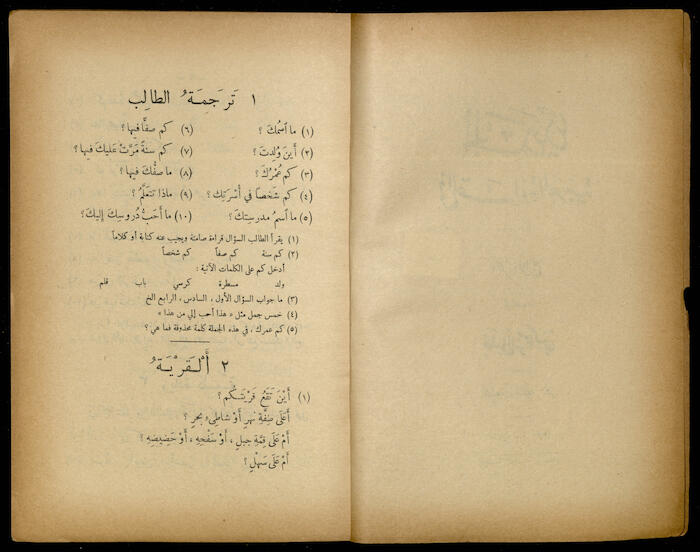 ١ تَرجَمِةُ الطالِب
(١) ما اسمُكَ ؟ (٦) كم صفًّا فيها ؟
(٢) أَينَ وُلِدتَ ؟ (٧) كم سنةً مَرَّتْ عَليكَ فيها ؟
(٣) كم عُمْرُكَ ؟ (٨) ما صفُّكَ فيها ؟
(٤) كم شَخصاً في أُسْرَتِك ؟ (٩) ماذا تتعَلَّمُ ؟
(٥) ما اسمُ مدرسِتكَ ؟ (١٠) ما أَحَبُّ دُروسِكَ إليكَ ؟
(١) يقرأ الطالب السؤال قراءة صامتة ويجيب عنه كتابة أو كلاماً
(٢) كم سنة كم صفاً كم شخصاً
أدخل كم على الكلمات الآتية :
ولد مسطرة كرسي باب قلم
(٣) ما جواب السؤال الأول ، السادس ، الرابع الخ
(٤) خمس جمل مثل « هذا أحب إلي من هذا »
(٥) كم عمرك ، في هذه الجملة كلمة محذوفة فما هي ؟
٢ أَلْقَرْيَةُ
(١) أَيْنَ تَقَعُ قَرْيَتُكُم ؟
أَعَلَى ضِفَّةِ نهرٍ أَوْ شاطىءِ بحرٍ ؟
أَمْ عَلَى قِمَّةِ جبلٍ ، أَوْ سَفْحِهِ ، أَوْ حَضِيضِهِ ؟
أَمْ عَلَى سَهْلٍ ؟